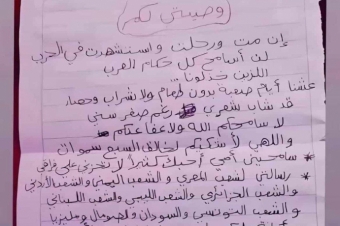 (وصيتي لكم)
إن مت ورحلت واستشهدت في الحرب
لن أسامح كل حكام العرب
اللذين خذلونا...
عشنا أيام صعبة بدون طعام ولا شراب وحصار
قد شاب شعري رغم صغر سني
لا سامحكم الله ولا عفا عنكم
واللهي لأشكيكم لخالق السبع سموات
* سامحيني أمي أحبك كثيرا لا تحزني على فراقي
* رسالتي لشعب المغربي و الشعب اليمني والشعب الأردني
والشعب الجزائري والشعب الليبي ولشعب اللبناني
و الشعب التونسي والسودان ولصومال وماليزيا